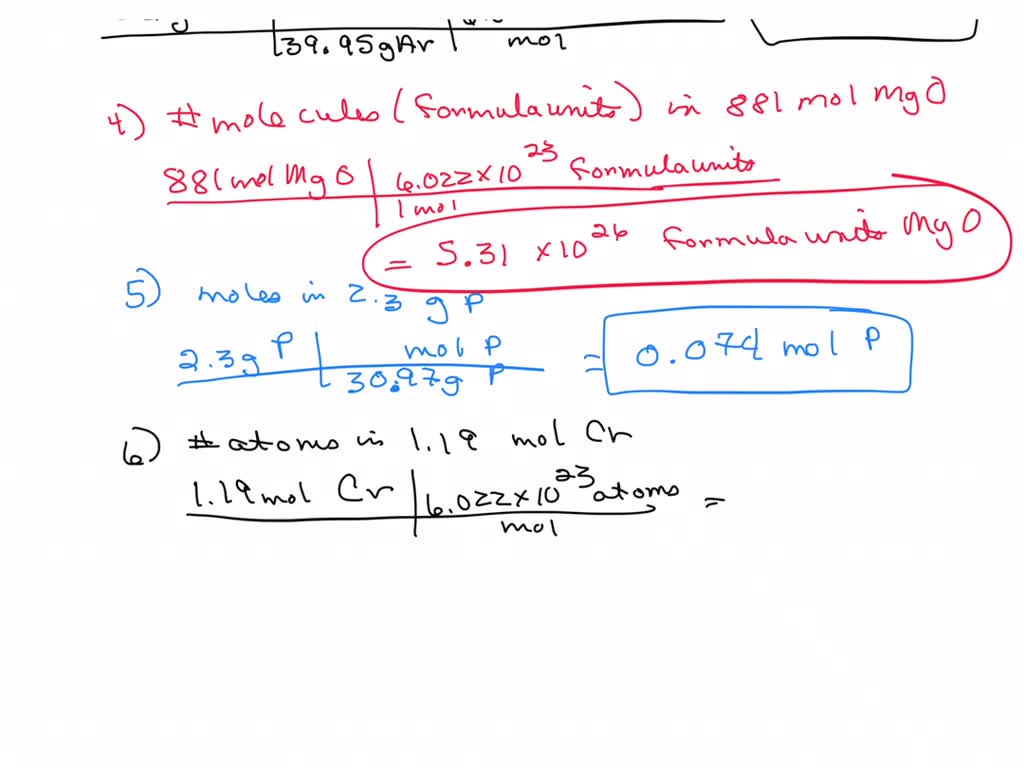 39.95gAr mol
4) # molecules (formula units) in 881 mol MgO
881 mol MgO | 6.022×10^23 formula units
1 mol
= 5.31 ×10^26 formula units MgO
5) moles in 2.3 g P
2.3g P | mol P = 0.074 mol P
30.97g P
6) # atoms in 1.19 mol Cr
1.19 mol Cr | 6.022×10^23 atoms =
mol